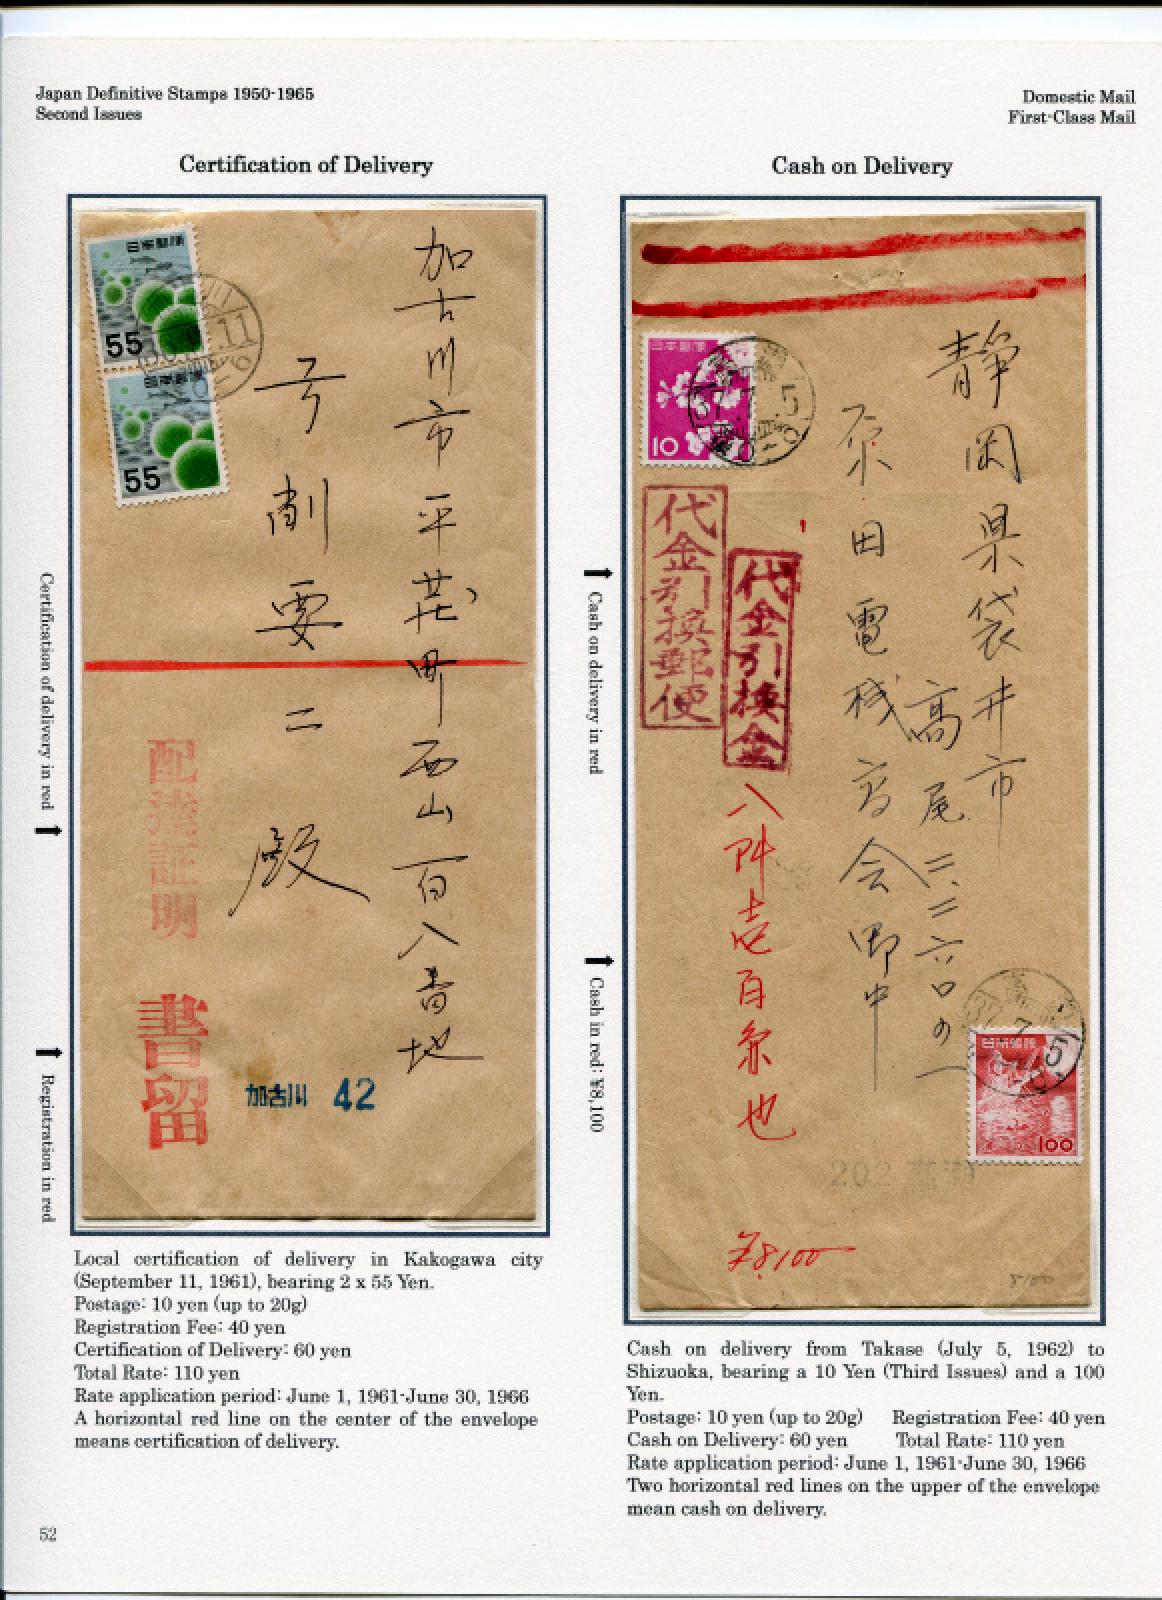 Japan Definitive Stamps 1950-1965
Second Issues
Domestic Mail
First-Class Mail
Certification of Delivery
Cash on Delivery
日本郵便
55
日本郵便
55
11
加古川市平荘町西山百八番地
弓削要二殿
配達証明
書留
加古川 42
Certification of delivery in red
Registration in red
日本郵便
10
37.7.5
代金引換郵便
代金引換金
八阡壱百円也
静岡県袋井市
高尾二、二六〇の一
原田電機商会御中
日本郵便
100
37.7.5
202
¥8,100
8100
Cash on delivery in red
Cash in red: ¥8,100
Local certification of delivery in Kakogawa city
(September 11, 1961), bearing 2 x 55 Yen.
Postage: 10 yen (up to 20g)
Registration Fee: 40 yen
Certification of Delivery: 60 yen
Total Rate: 110 yen
Rate application period: June 1, 1961-June 30, 1966
A horizontal red line on the center of the envelope
means certification of delivery.
Cash on delivery from Takase (July 5, 1962) to
Shizuoka, bearing a 10 Yen (Third Issues) and a 100
Yen.
Postage: 10 yen (up to 20g) Registration Fee: 40 yen
Cash on Delivery: 60 yen Total Rate: 110 yen
Rate application period: June 1, 1961-June 30, 1966
Two horizontal red lines on the upper of the envelope
mean cash on delivery.
52